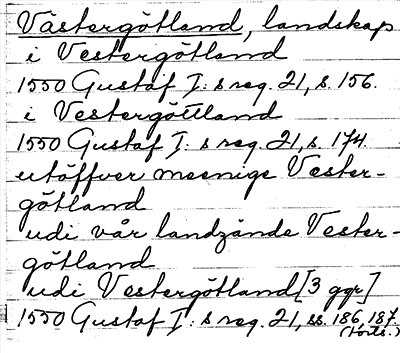 Västergötland, landskap
i Vestergötland
1550 Gustaf I:s reg. 21, s. 156.
i Vestergöttland
1550 Gustaf I:s reg. 21, s. 174.
utöffver meenige Vester-
götland
udi vår landzände Vester-
götland
udi Vestergötland [3 ggr]
1550 Gustaf I:s reg. 21, ss. 186, 187.
(forts.)